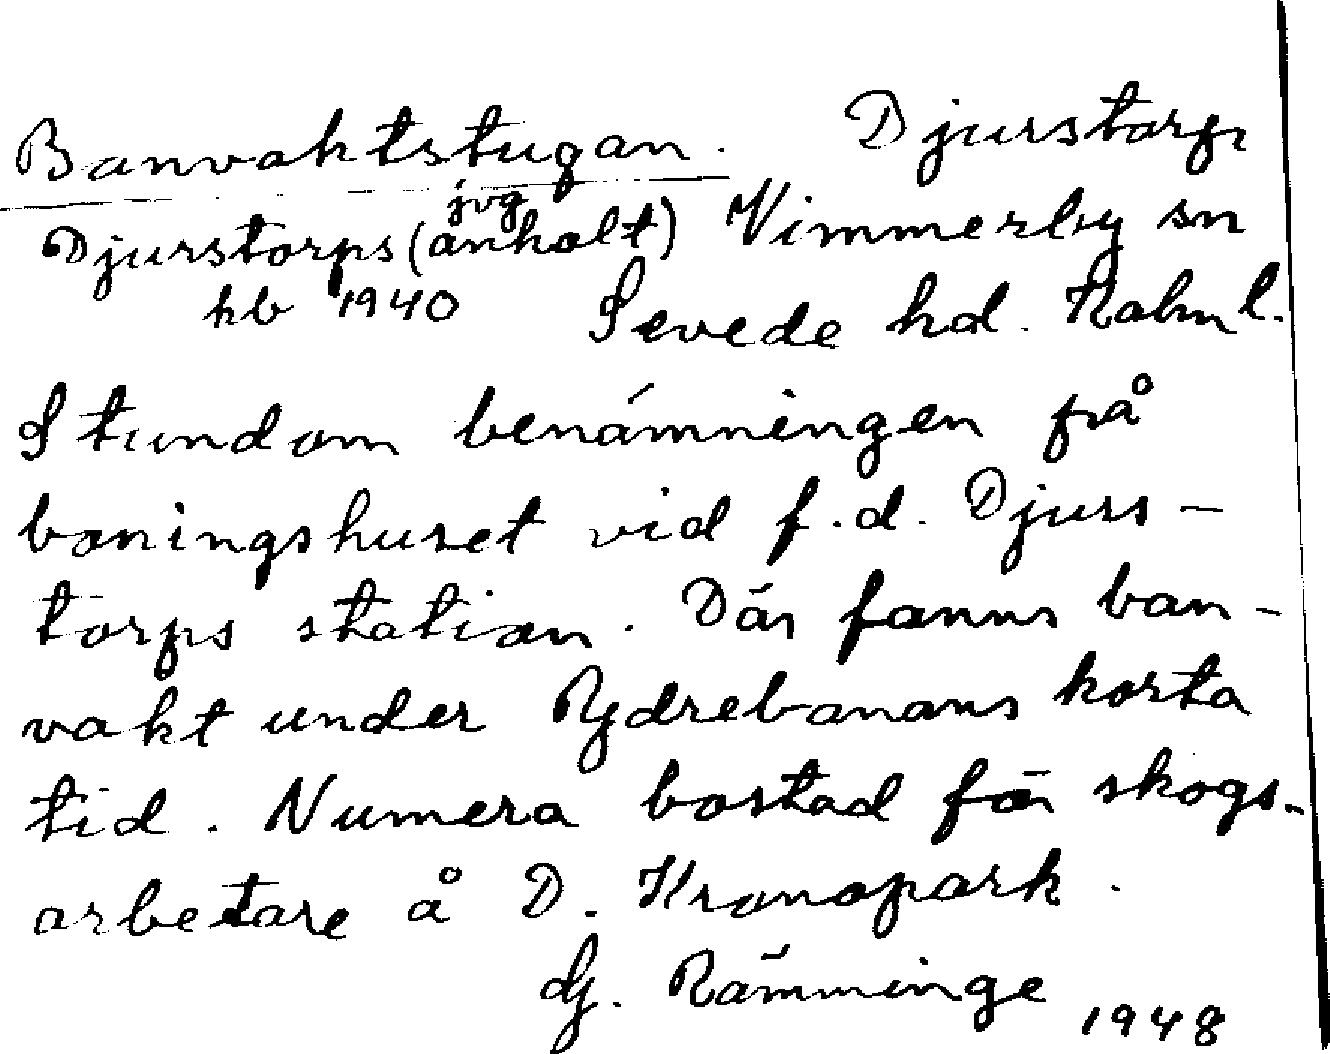 Banvaktstugan. Djurstorp,
Djurstorps (jvg anhalt) Vimmerby sn
hb 1940 Sevede hd. Kalm l.
Stundom benämningen på
boningshuset vid f.d. Djurs-
torps station. Där fanns ban-
vakt under Rydrebanans korta
tid. Numera bostad för skogs-
arbetare å D. Kronopark.
G. Rämminge 1948